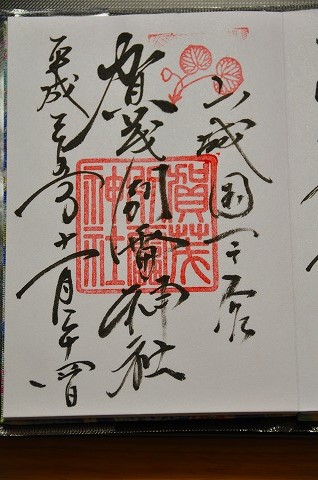 山城国一之宮
賀茂別雷神社
平成二十五年十一月二十四日
賀茂
別雷
神社